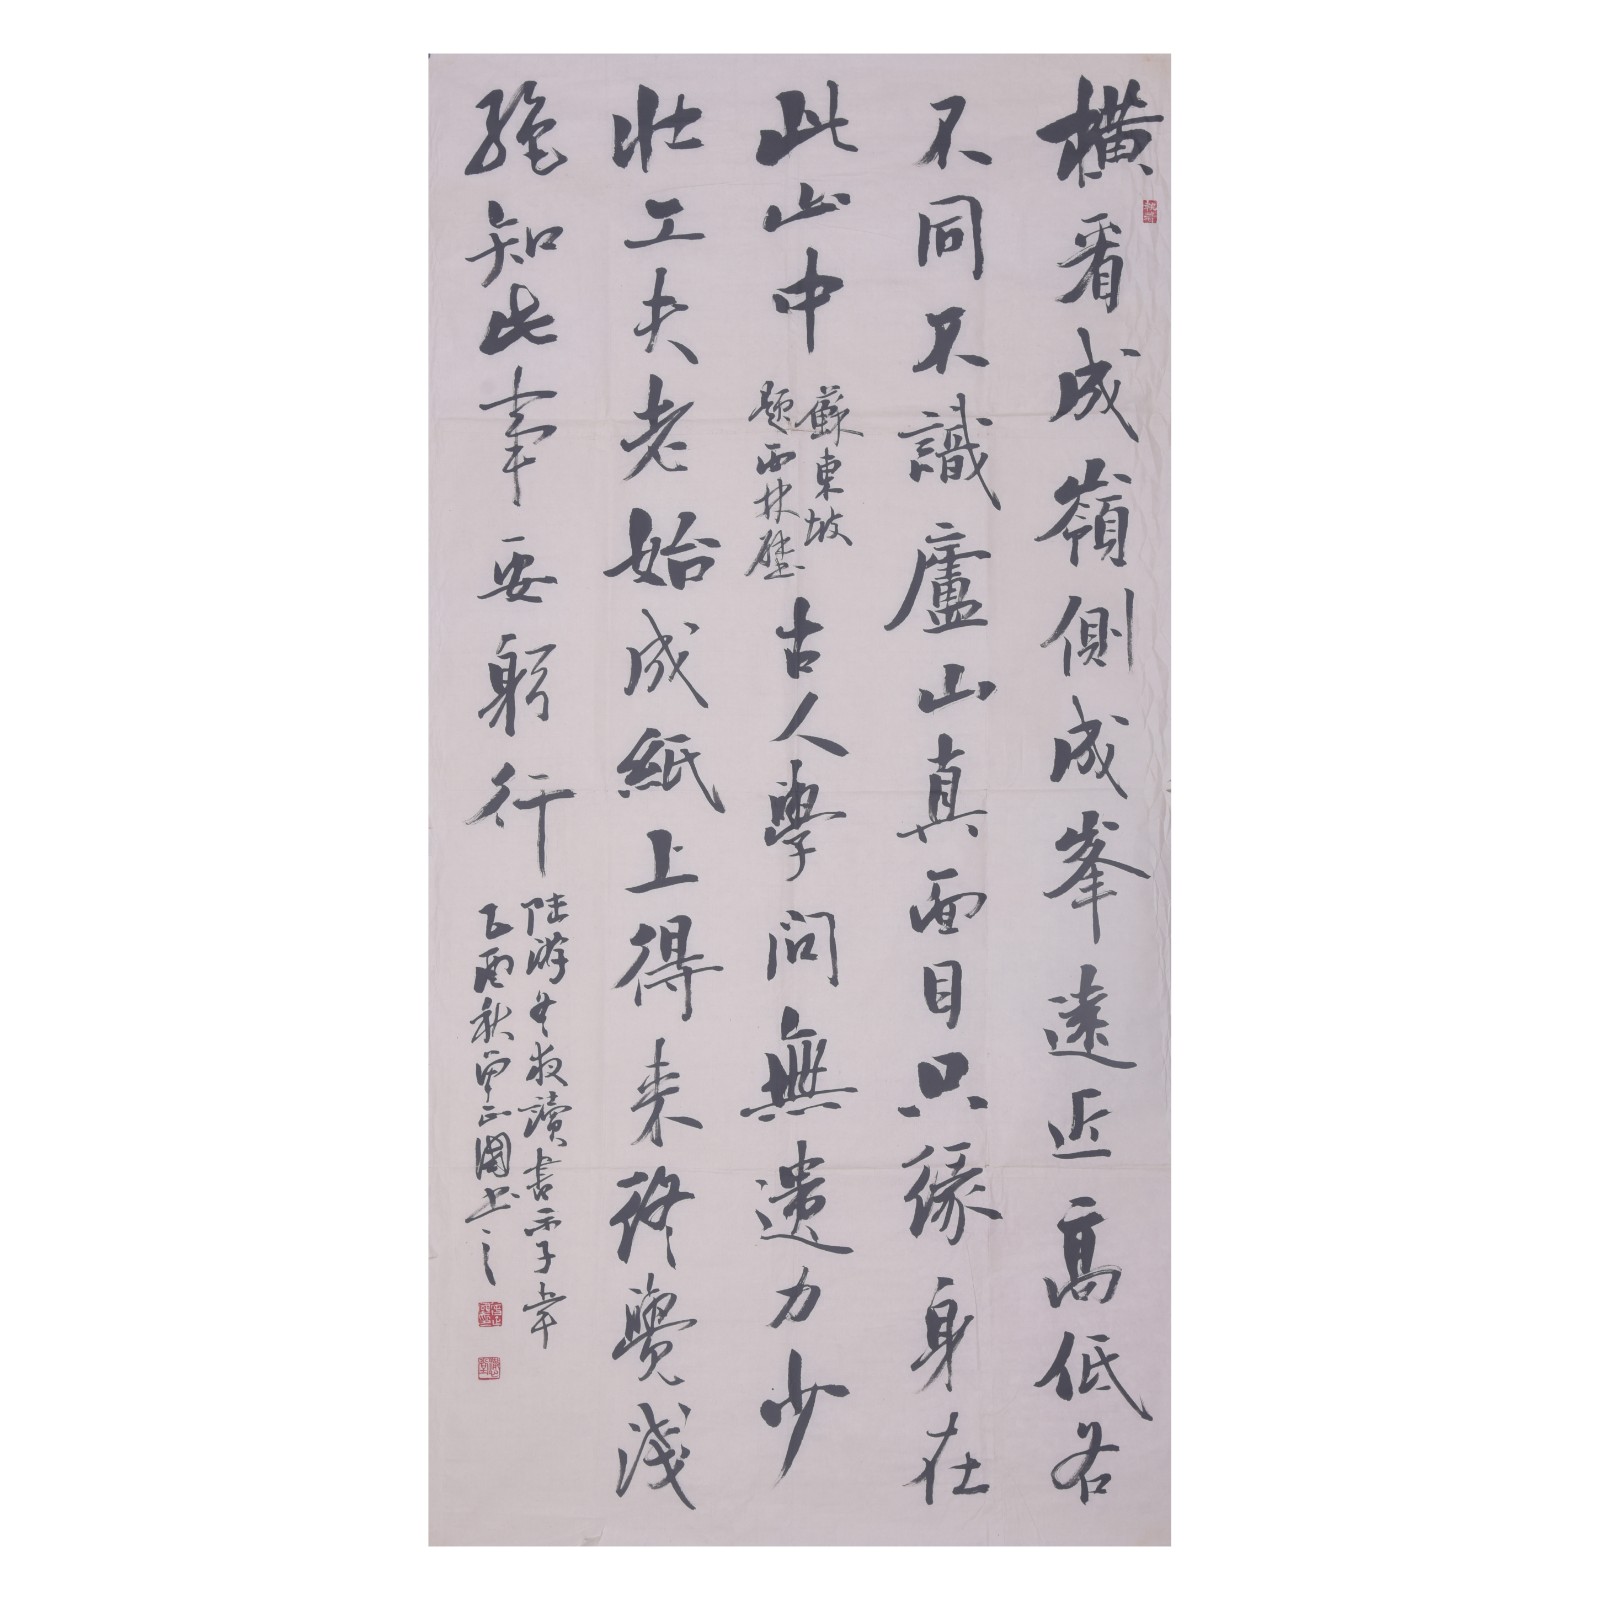 橫看成嶺側成峯遠近高低各
不同不識廬山真面目只緣身在
此山中
蘇東坡
題西林壁
古人學問無遺力少
壯工夫老始成紙上得來終覺淺
絕知此事要躬行
陸游冬夜讀書示子聿
乙酉秋 正國书之